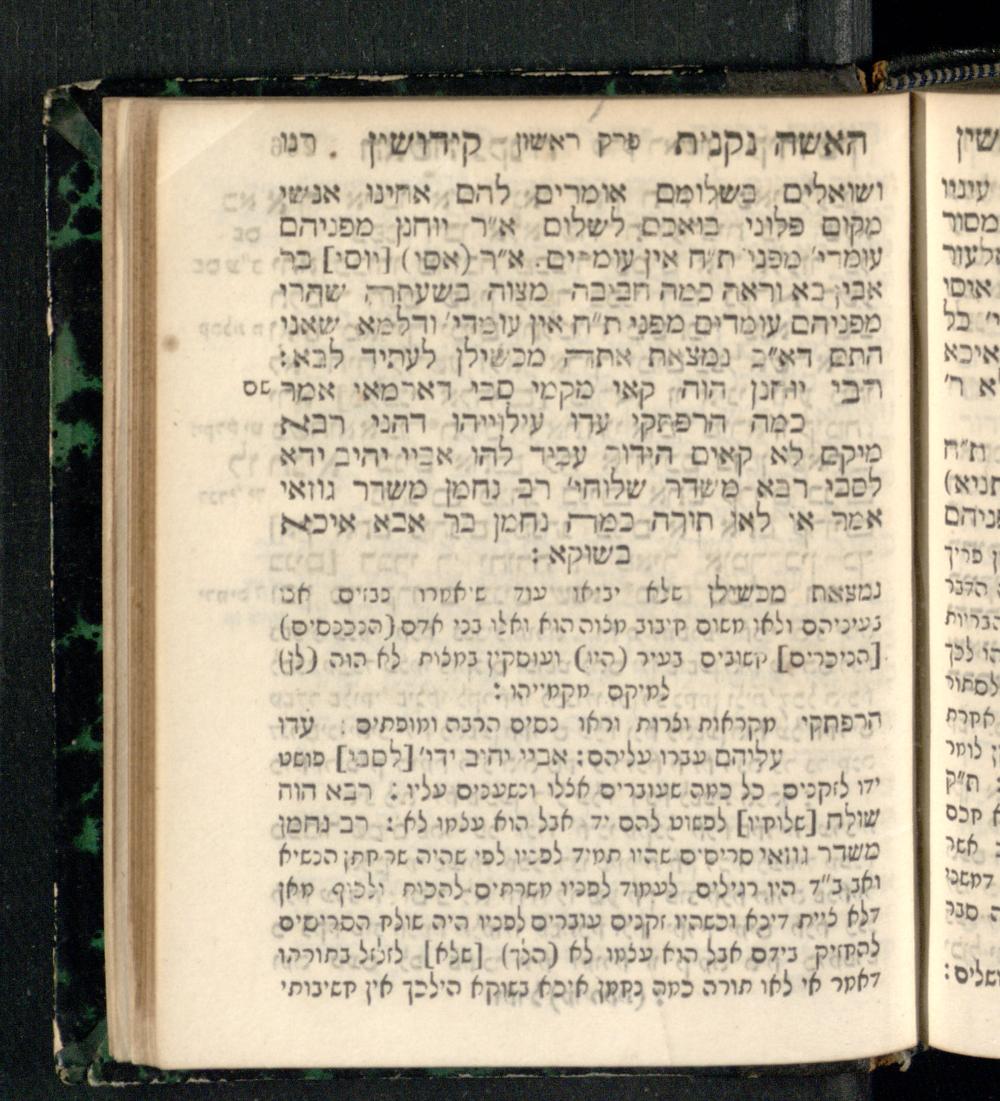 האשה נקנית פרק ראשון קידושין רנו
ושואלים בשלומם אומרים להם אחינו אנשי
מקום פלוני בואכם לשלום א״ר יוחנן מפניהם
עומדי׳ מפני ת״ח אין עומדים. א״ר (אסי) [יוסי] בר
אבין בא וראה כמה חביבה מצוה בשעתה שהרי
מפניהם עומדים מפני ת״ח אין עומדי׳ ודלמא שאני
התם דא״כ נמצאת אתה מכשילן לעתיד לבא:
רבי יוחנן הוה קאי מקמי סבי דארמאי אמר שם
כמה הרפתקי עדו עילוייהו דהני רבא
מיקם לא קאים הידור עביד להו אביי יהיב ידא
לסבי רבא משדר שלוחי׳ רב נחמן משדר גוזאי
אמר אי לאו תורה כמה נחמן בר אבא איכא
בשוקא:
נמצאת מכשילן שלא יביאו עוד שיאמרו בזוים אנו
בעיניהם ולאו משום חיבוב מצוה הוא ואלו בני אדם (הנכנסים)
[הניכרים] חשובים בעיר (היו) ועוסקין במלות לא הוה (לן)
למיקם מקמייהו:
הרפתקי מקראות וצרות וראו נסים הרבה ומופתים: עדו
עליהם עברו עליהם: אביי יהיב ידו׳ [לסבי] פושט
ידו לזקנים כל כמה שעוברים אצלו ונשענים עליו: רבא הוה
שולח [שלוחיו] לפשוט להם יד אבל הוא עצמו לא: רב נחמן
משדר גוזאי סריסים שהיו תמיד לפניו לפי שהיה שר חתן הנשיא
ואב ב״ד היו רגילים לעמוד לפניו משרתים להכות ולכוף מאן
דלא ציית דינא וכשהיו זקנים עוברים לפניו היה שולח הסריסים
להחזיק בידם אבל הוא עצמו לא (הלך) [שלא] לזלזל בתורתו
דאמר אי לאו תורה כמה נחמן איכא בשוקא הילכך אין חשיבותי